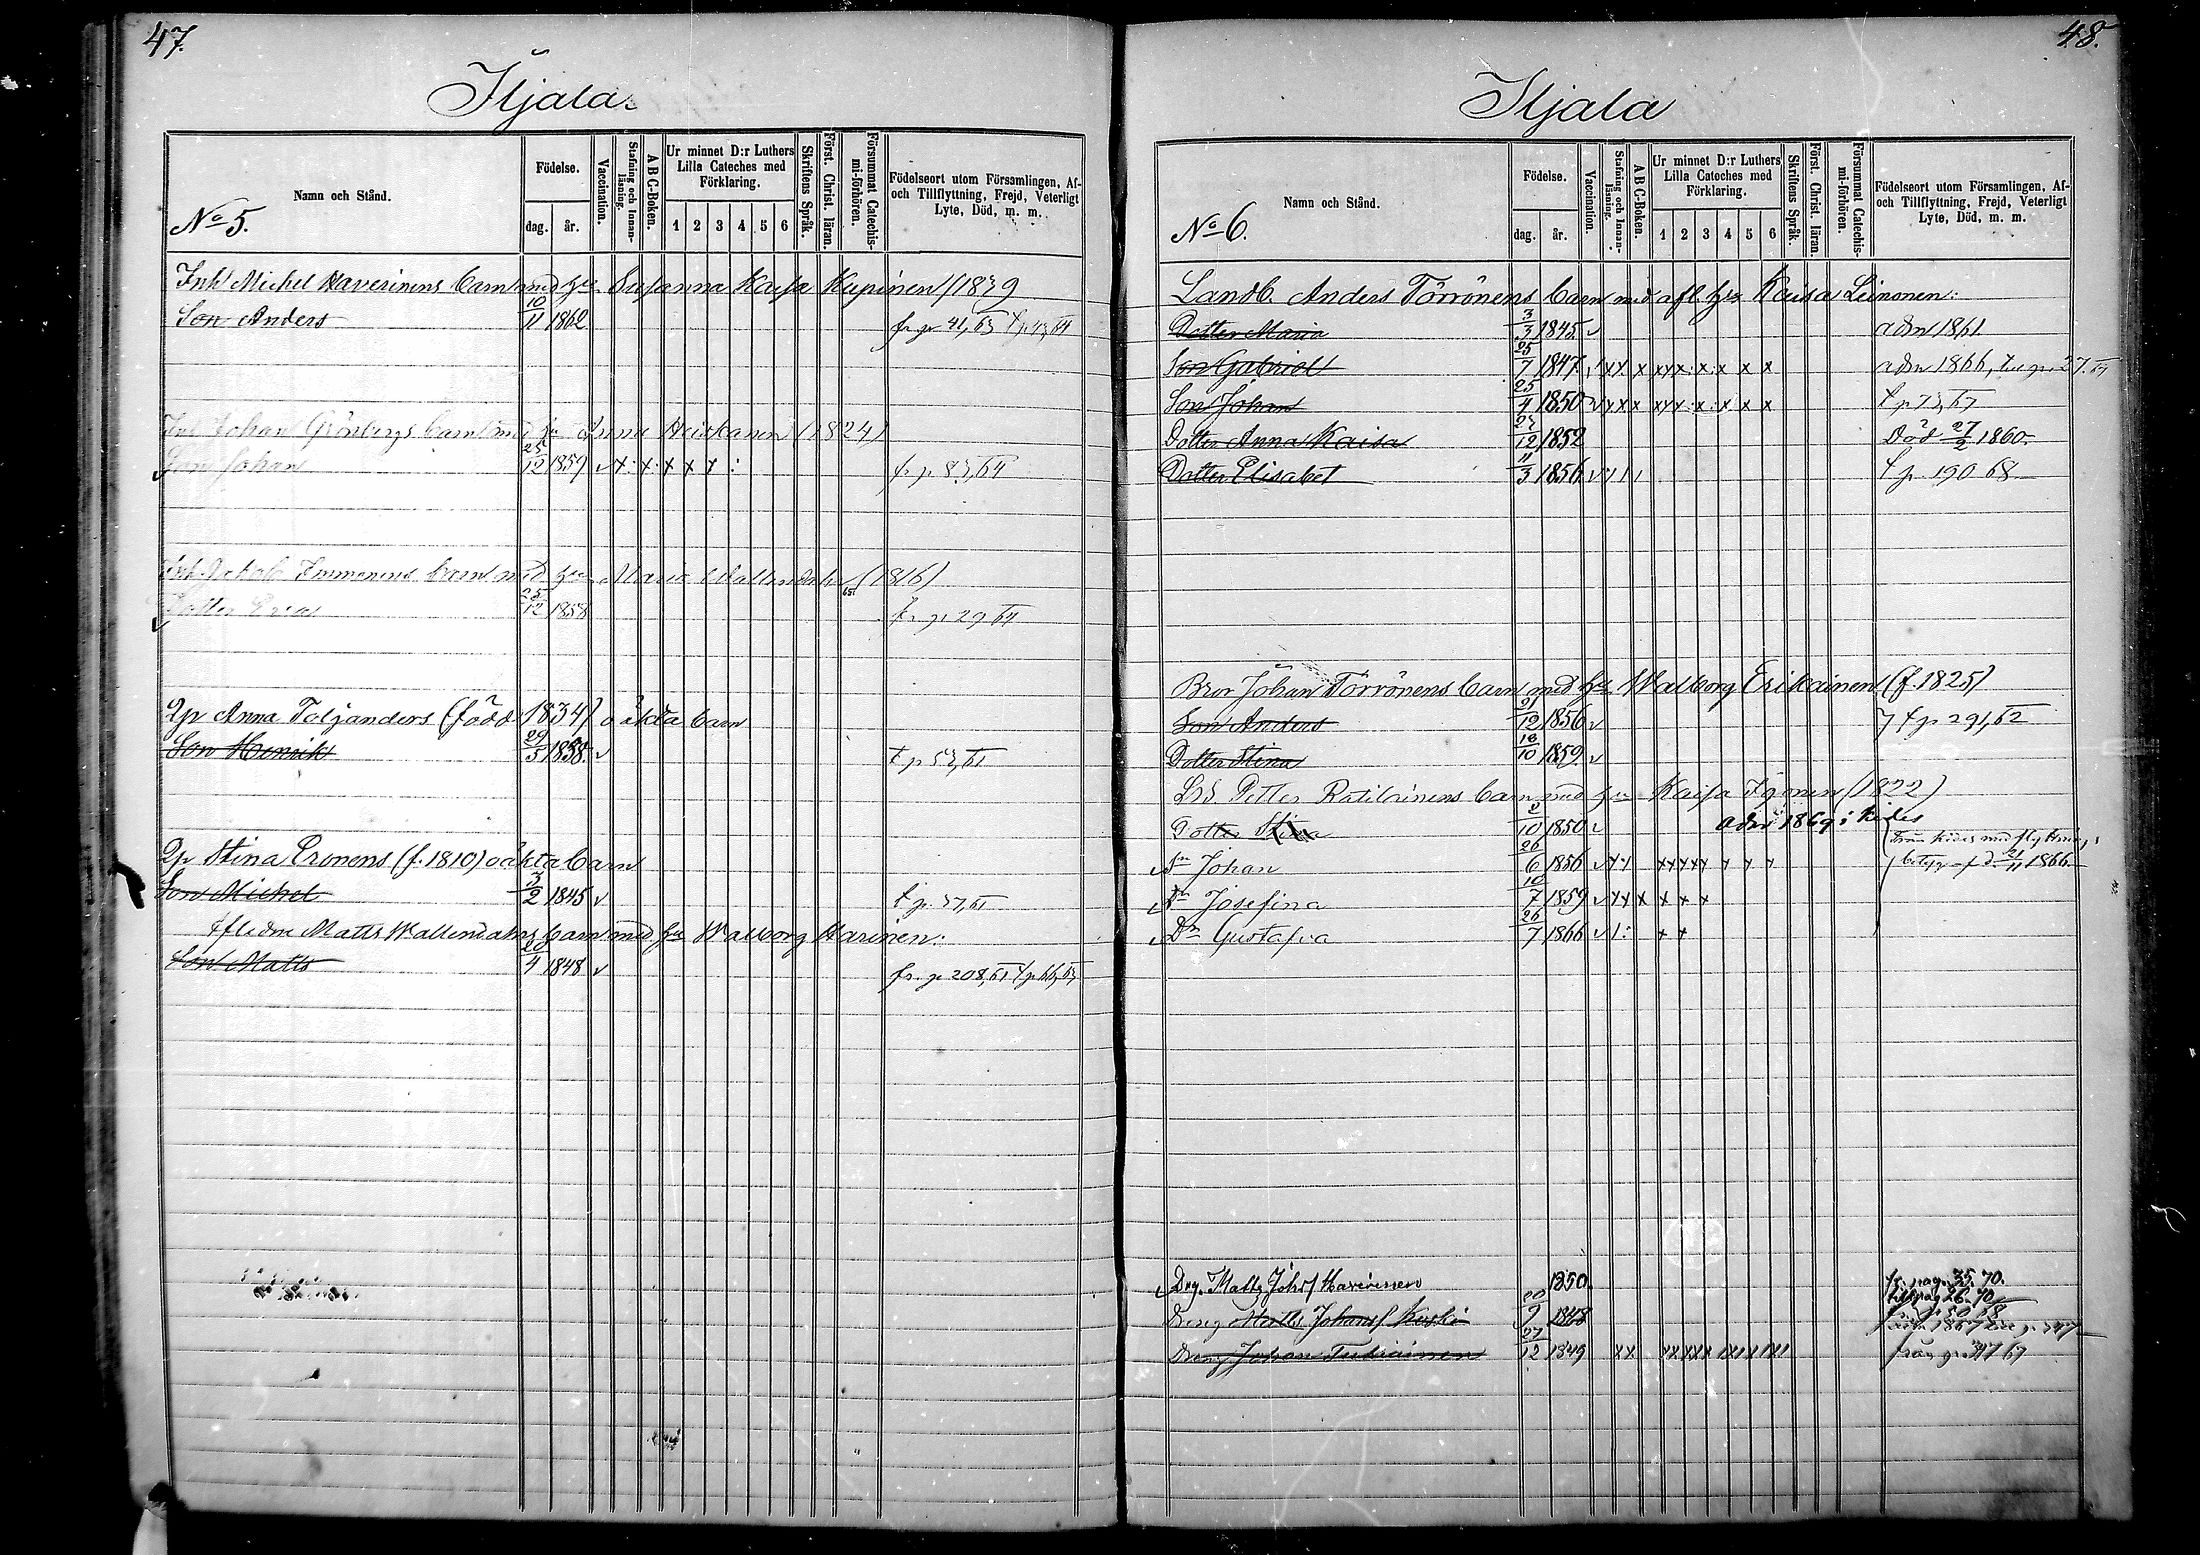 47.
Iljala
No 5.
Namn och Stånd.
Födelse.
dag. år.
Vaccination.
Stafning och Innan-läsning.
A B C-Boken.
Ur minnet D:r Luthers Lilla Cateches med Förklaring.
1 2 3 4 5 6
Skriftens Språk.
Först. Christ. läran.
Försummat Catechis-mi-förhören.
Födelseort utom Församlingen, Af- och Tillflyttning, Frejd, Veterligt Lyte, Död, m. m.
Inh Michel Haverinens barn med hu Susanna Kaisa Kupinen (1839
Son Anders 10/11 1862 fr p 41,63 t p 43,64
Inh Johan Grönbergs barn med hu Anna Heiskanen (1824)
Son Johan 25/12 1859 fr p 83,64
Inh Immonens barn med hu Maria Wallendahr (1816)
Dotter Eva 25/12 1858 fr p 29 64
Qp Anna Toljanders (född 1834) oäkta barn
Son Henrik 29/5 1858. t p 53,61
Qp Stina Eronens (f. 1810) oäkta barn
Son Michel 3/2 1845 t p 37,61
Afledne Matts Wallendahrs barn med hu Walborg Harinen:
Son Matts 20/4 1848 fr. p 208,61 t p 66,63
48.
Iljala
No 6.
Namn och Stånd.
Födelse.
dag. år.
Vaccination.
Stafning och Innan-läsning.
A B C-Boken.
Ur minnet D:r Luthers Lilla Cateches med Förklaring.
1 2 3 4 5 6
Skriftens Språk.
Först. Christ. läran.
Försummat Catechis-mi-förhören.
Födelseort utom Församlingen, Af- och Tillflyttning, Frejd, Veterligt Lyte, Död, m. m.
Landb. Anders Törrönens barn med afl. hu Kaisa Leinonen:
Dotter Maria 3/3 1845 adm 1861
Son Gabriel 25/7 1847 x x x x x x x x x x adm 1866, p 27.
Son Johan 25/4 1850 x x x x x x x x x t p 73,67
Dotter Anna Kaisa 27/12 1852 Död 27/2 1860
Dotter Elisabet 11/3 1856 t p. 190 68
Bror Johan Törrönens barn med hu Walborg Erikainen (f. 1825)
Son Anders 21/12 1856 t p 291,62
Dotter Stina 18/10 1859
Petter Ratilainens barn med hu Kaisa Igonen (1822)
Dotter Stina 2/10 1850 adm 1869 i Kides
Sn Johan 26/6 1856 Från Kides med flyttnings
betyg d. 21/11 1866
Dr Josefina 10/7 1859
Dr Gustafva 26/7 1866
Drg. Matts Johsf Haverinen 1850. fr. pag. 35. 70.
till pag 26. 70
Dreng Matts Johansf Koski 20/9 1848 fr p 50 68
Dreng Johan Tukiainen 27/12 1849 från p 347 67